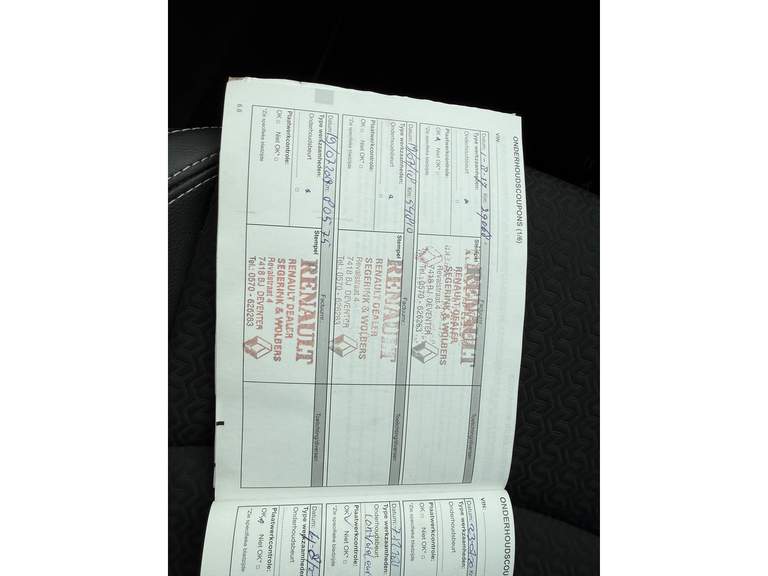 ONDERHOUDSCOUPONS (1/6)
VIN:
Datum: Km:
Type werkzaamheden:
Onderhoudsbeurt
Plaatwerkcontrole:
OK Niet OK*
*Zie specifieke bladzijde
Stempel
RENAULT
RENAULT DEALER
SEGERINK & WOLBERS
Revalstraat 4
7418 BJ DEVENTER
Tel.: 0570 - 626263
Toelichting/diversen:
Datum: Km: 59010
Type werkzaamheden:
Onderhoudsbeurt
Plaatwerkcontrole:
OK Niet OK*
*Zie specifieke bladzijde
Stempel Factuurnr.
RENAULT
RENAULT DEALER
SEGERINK & WOLBERS
Revalstraat 4
7418 BJ DEVENTER
Tel.: 0570 - 626263
Toelichting/diversen:
Datum: 19/07/2019 Km: 80575
Type werkzaamheden:
Onderhoudsbeurt
Plaatwerkcontrole:
OK Niet OK*
*Zie specifieke bladzijde
Stempel Factuurnr.
RENAULT
RENAULT DEALER
SEGERINK & WOLBERS
Revalstraat 4
7418 BJ DEVENTER
Tel.: 0570 - 626263
Toelichting/diversen:
6.8
ONDERHOUDSCOU
VIN:
Datum:
Type werkzaam
Onderhoudsbeurt
Plaatwerkcontrole:
OK Niet OK*
*Zie specifieke bladzijde
Datum:
Type werkzaa
Onderhoudsbeurt
Plaatwerkcontrole:
OK Niet OK*
*Zie specifieke bladzijde
Datum:
Type werkzaam
Onderhoudsbeurt
Plaatwerkcontrole:
OK Niet OK*
*Zie specifieke bladzijde